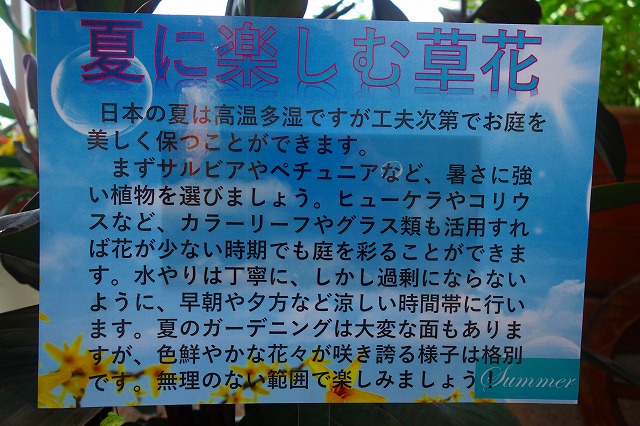 夏に楽しむ草花
日本の夏は高温多湿ですが工夫次第でお庭を
美しく保つことができます。
まずサルビアやペチュニアなど、暑さに強
い植物を選びましょう。ヒューケラやコリウ
スなど、カラーリーフやグラス類も活用すれ
ば花が少ない時期でも庭を彩ることができま
す。水やりは丁寧に、しかし過剰にならない
ように、早朝や夕方など涼しい時間帯に行い
ます。夏のガーデニングは大変な面もありま
すが、色鮮やかな花々が咲き誇る様子は格別
です。無理のない範囲で楽しみましょう
Summer